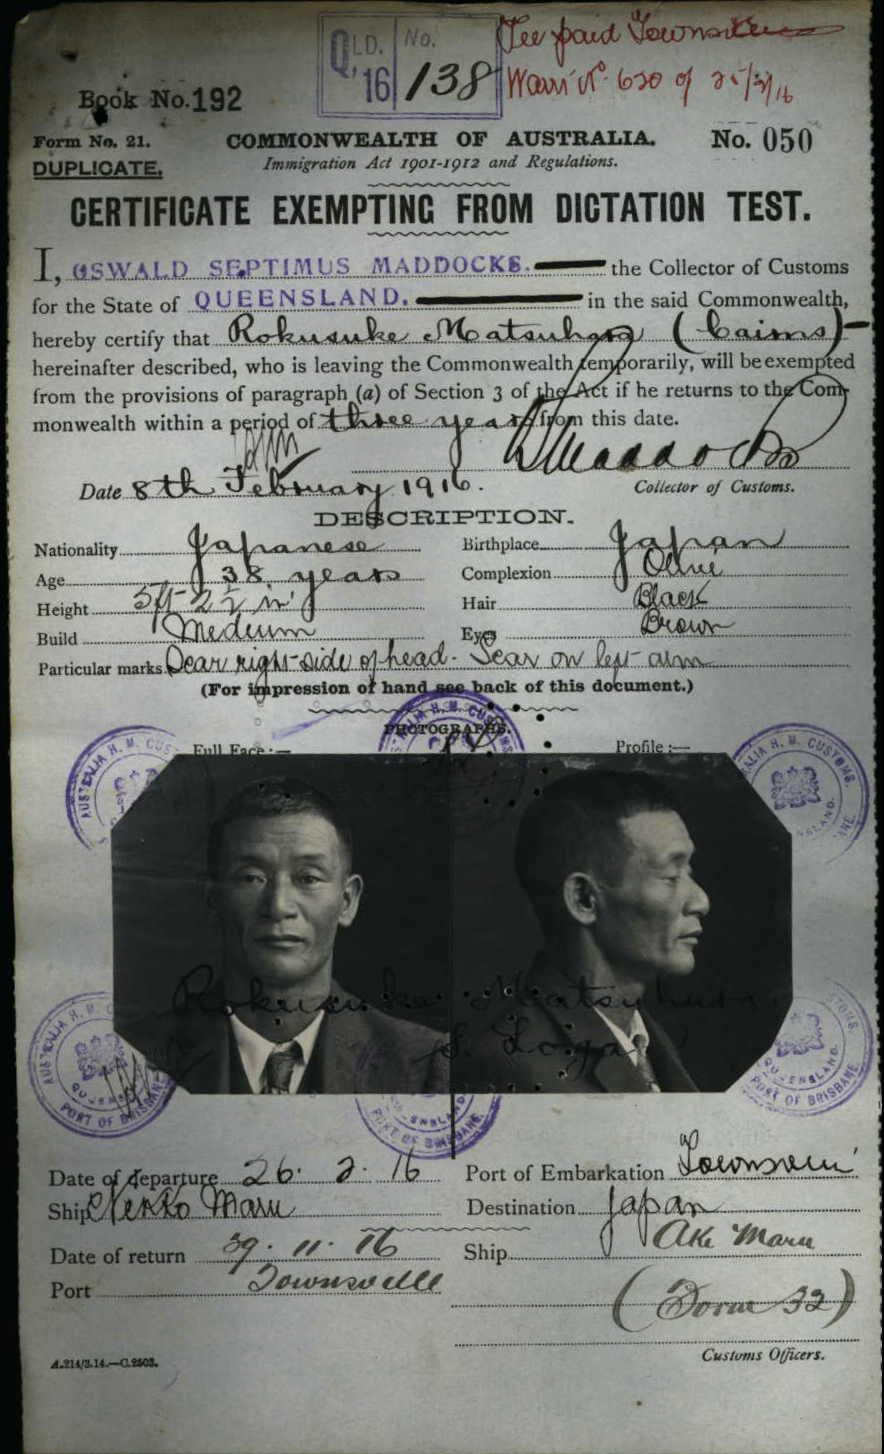 QLD. 16 No. 138
Fee paid Townsville
Warr't No. 620 of 25/2/16
Book No. 192
Form No. 21.
COMMONWEALTH OF AUSTRALIA.
No. 050
DUPLICATE.
Immigration Act 1901-1912 and Regulations.
CERTIFICATE EXEMPTING FROM DICTATION TEST.
I, OSWALD SEPTIMUS MADDOCKS. the Collector of Customs
for the State of QUEENSLAND. in the said Commonwealth,
hereby certify that Rokusuke Matsuhara (Cairns)
hereinafter described, who is leaving the Commonwealth temporarily, will be exempted
from the provisions of paragraph (a) of Section 3 of the Act if he returns to the Com-
monwealth within a period of three years from this date.
Maddocks
Date 8th February 1916.
Collector of Customs.
DESCRIPTION.
Nationality Japanese
Birthplace Japan
Age 38 years
Complexion Olive
Height 5 ft 2 1/2 in
Hair Black
Build Medium
Eyes Brown
Particular marks Scar right side of head. Scar on left arm
(For impression of hand see back of this document.)
PHOTOGRAPHS.
Full Face :—
Profile :—
AUSTRALIA H. M. CUSTOMS
AUSTRALIA H. M. CUSTOMS.
Rokusuke Matsuhara
S. Koga
QUEENSLAND
PORT OF BRISBANE
QUEENSLAND.
PORT OF BRISBANE
PORT OF BRISBANE.
Date of departure 26. 2. 16
Port of Embarkation Townsville
Ship Nikko Maru
Destination Japan
Date of return 29. 11. 16
Ship Aki Maru
Port Townsville
(Form 32)
Customs Officers.
A.214/3.14.—C.2503.